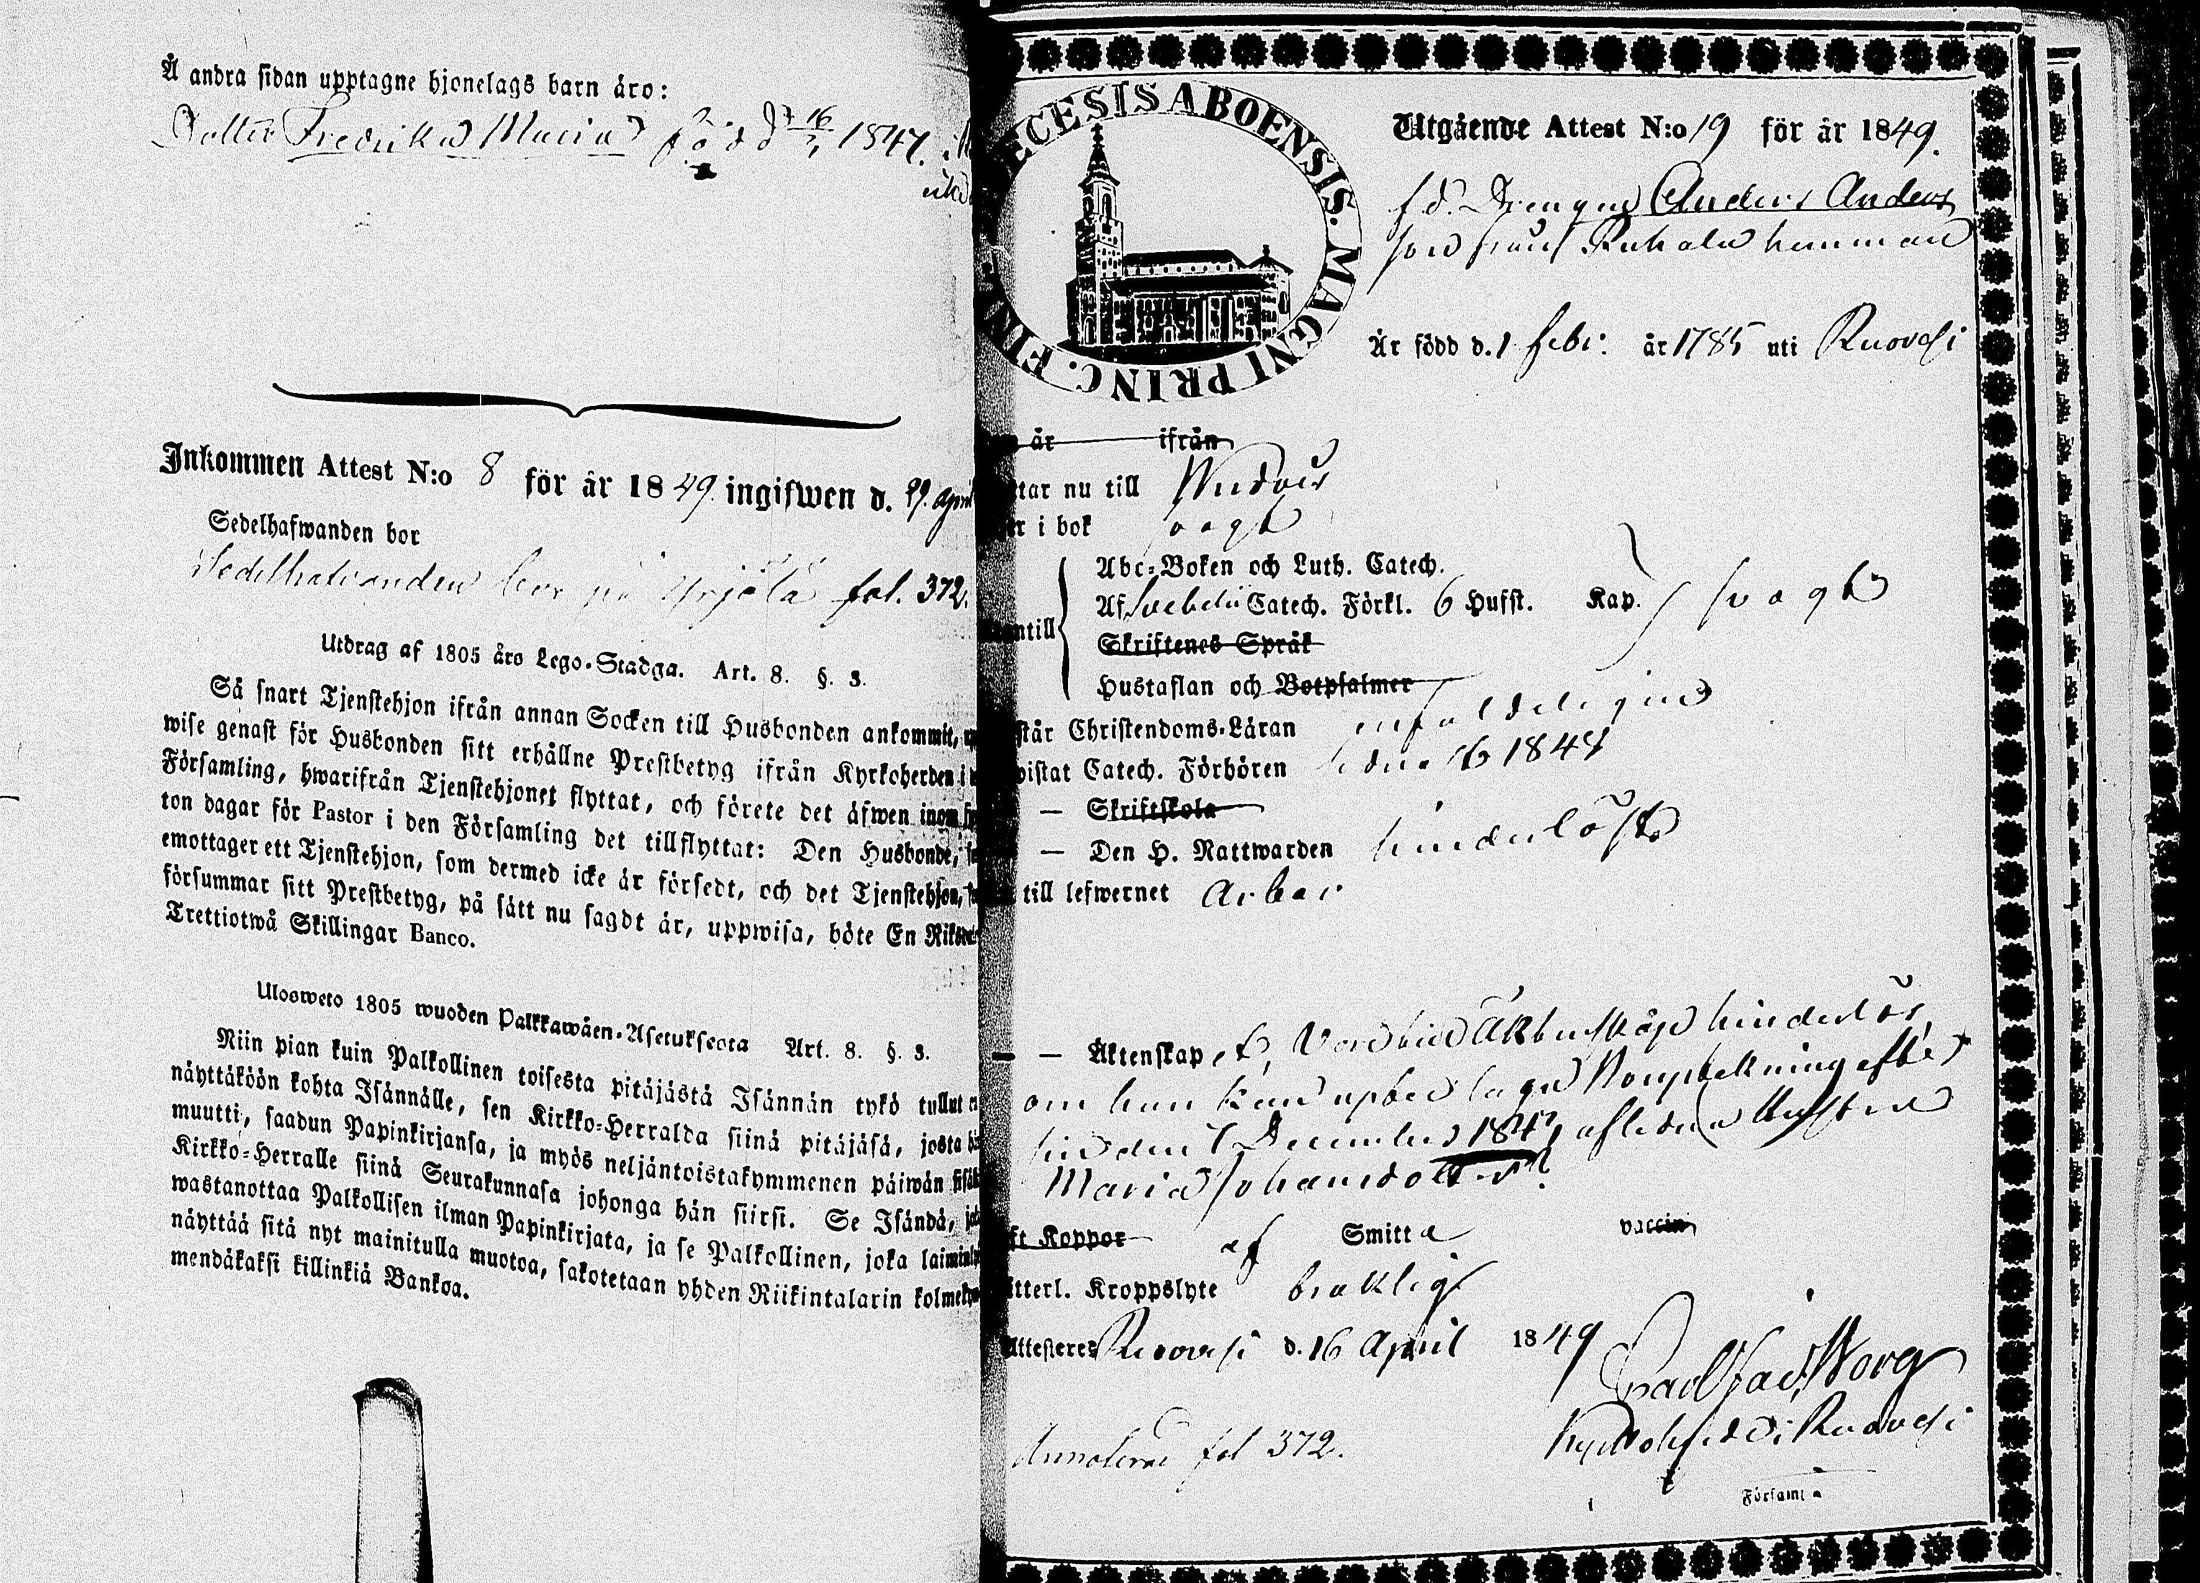 Å andra sidan upptagne hjonelags barn äro:
Dotter Fredrika Maria född d. 16/7 1847.
Inkommen Attest N:o 8 för år 1849 ingifwen d. 29. April
Sedelhafwanden bor
Sedelhafvanden bor på Yrjölä fol. 372.
Utdrag af 1805 års Lego-Stadga. Art. 8. §. 3.
Så snart Tjenstehjon ifrån annan Socken till Husbonden ankommit,
wise genast för Husbonden sitt erhållne Prestbetyg ifrån Kyrkoherden i
Församling, hwarifrån Tjenstehjonet flyttat, och förete det äfwen inom
ton dagar för Pastor i den Församling det tillflyttat: Den Husbonde,
emottager ett Tjenstehjon, som dermed icke är försedt, och det Tjenstehjon,
försummar sitt Prestbetyg, på sätt nu sagdt är, uppwisa, böte En Riksda
Trettiotwå Skillingar Banco.
Ulosweto 1805 wuoden Palkkawäen-Asetuksesta Art. 8. §. 3.
Niin pian kuin Palkollinen toisesta pitäjästä Isännän tykö tullut
näyttäköön kohta Isännälle, sen Kirkko-Herralda siinä pitäjäsä, josta
muutti, saadun Papinkirjansa, ja myös neljäntoistakymmenen päiwän sisäl
Kirkko-Herralle siinä Seurakunnasa johonga hän siirsi. Se Isändä,
wastanottaa Palkollisen ilman Papinkirjata, ja se Palkollinen, joka laimin
näyttää sitä nyt mainitulla muotoa, sakotetaan yhden Riikintalarin kolme
mendäkaksi killinkiä Bankoa.
ECESIS ABOENSIS. MAGNI PRINC. FIN
Utgående Attest N:o 19 för år 1849.
f.d. Drengen Anders Anders
son från Ruhala hemman
Är född d. 1 Febr. år 1785 uti Ruovesi
år ifrån
tar nu till
er i bok svagt
Abc-Boken och Luth. Catech.
Af Svebelii Catech. Förkl. 6 Hufst. Kap. svagt
ntill
Skriftenes Språk
Hustaflan och Botpsalmer
står Christendoms-Läran enfaldeligen
wistat Catech. Förhören
— Skriftskola
— Den H. Nattwarden hinderlöst
till lefwernet ärbar
— — Äktenskap
om han kan
December 1847 aflidna Hustru
Maria Johansdotter
ft Koppor af Smitta vaccin
itterl. Kroppslyte bräklig
Attesteres Ruovesi d. 16 April 1849
Kyrkoherde i Ruovesi
Annoterad fol 372.
Församl